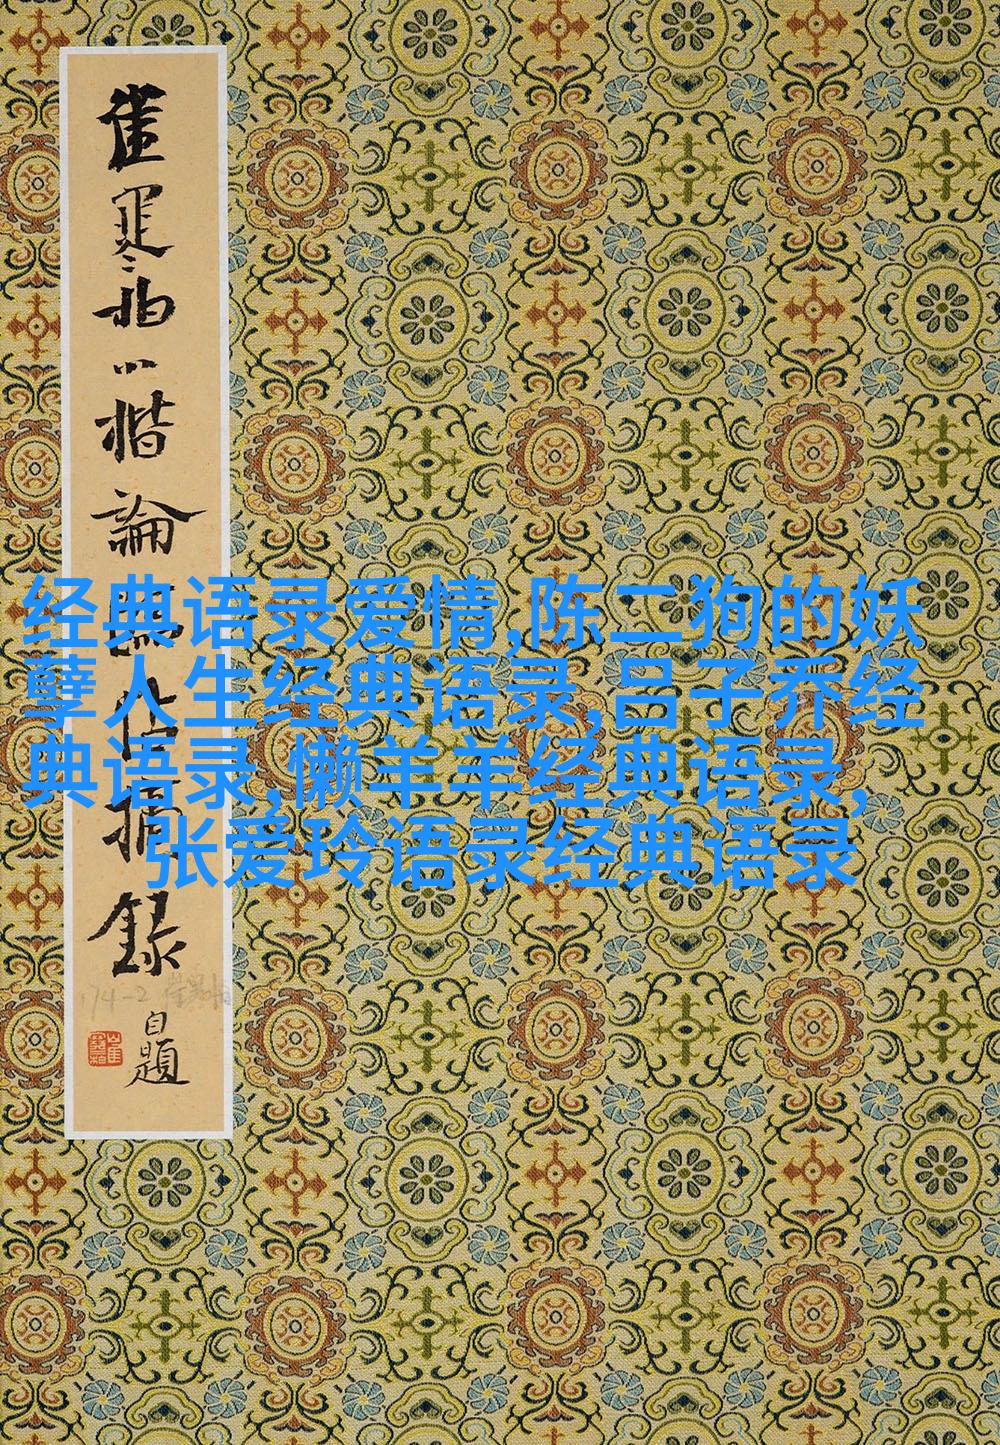 崔寒柏小楷論 錄
自題
174-2
经典语录爱情,陈二狗的妖
孽人生经典语录,吕子乔经
典语录,懒羊羊经典语录,
张爱玲语录经典语录